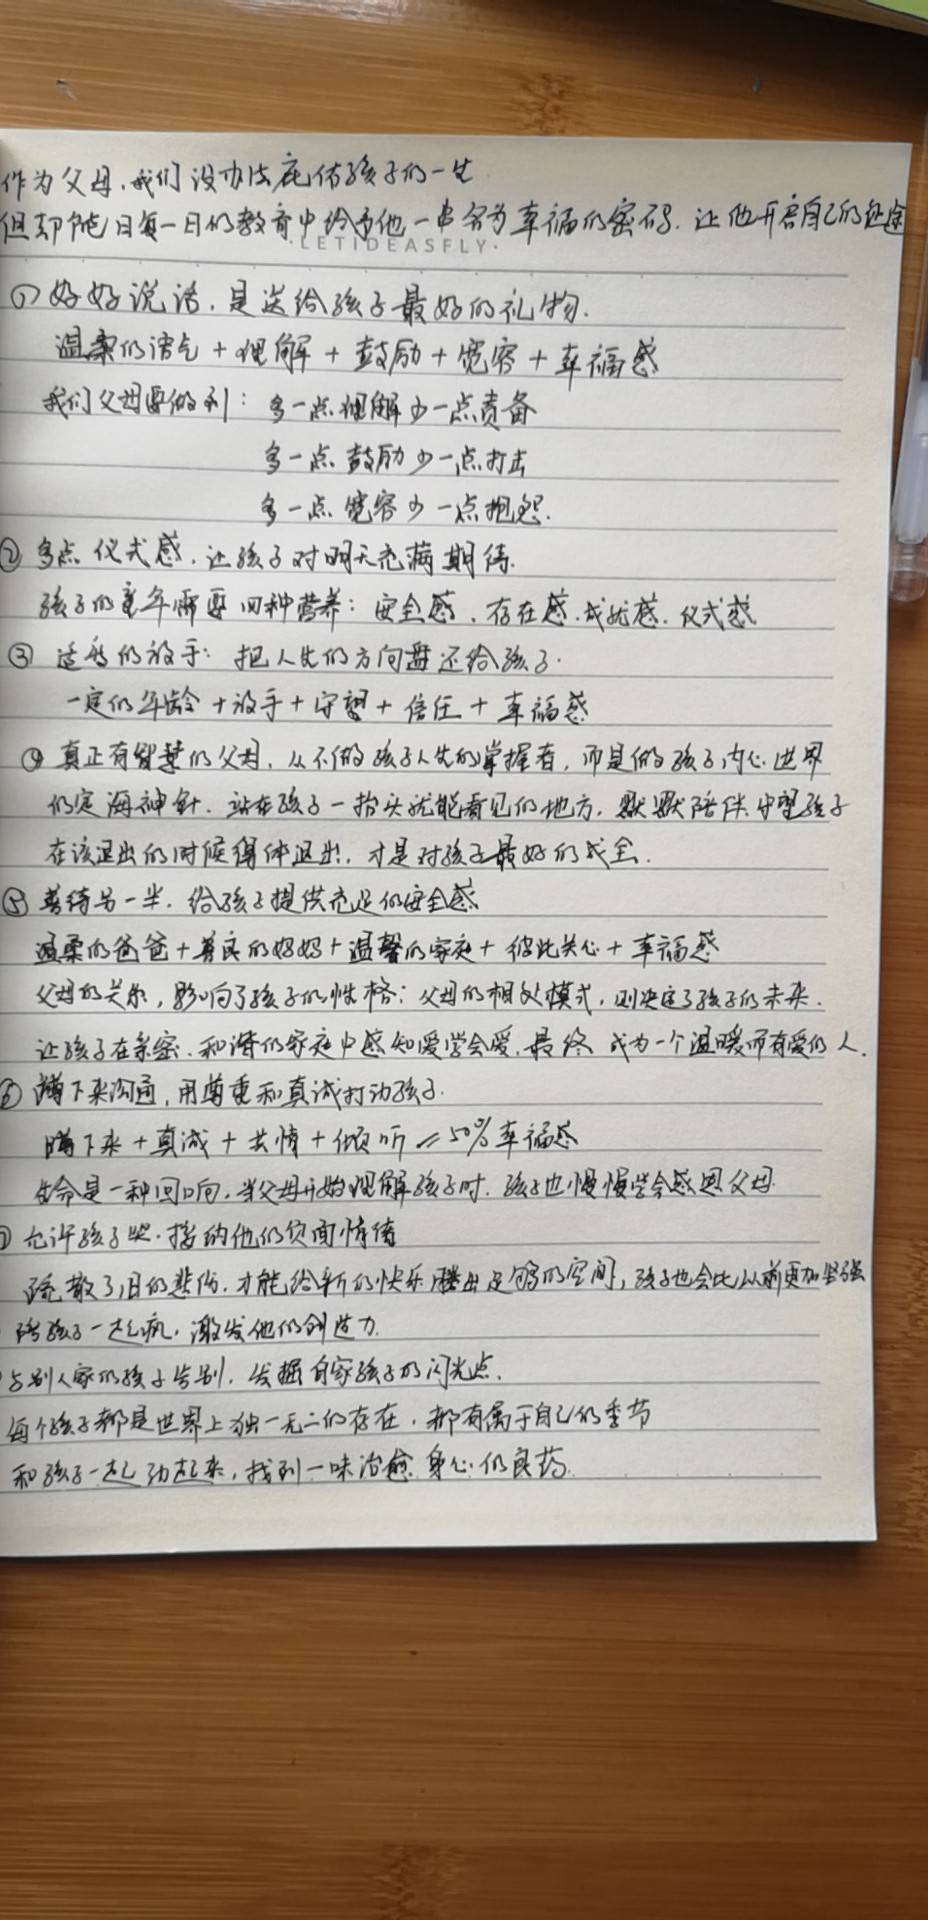 作为父母.我们没办法庇佑孩子的一生
但却能日复一日的教育中给予他一串名为幸福的密码.让他开启自己的征途
LETIDEASFLY.
① 好好说话.是送给孩子最好的礼物.
温柔的语气+理解+鼓励+宽容+幸福感
我们父母要做到: 多一点理解少一点责备
多一点鼓励少一点打击
多一点宽容少一点抱怨.
② 多点仪式感.让孩子对明天充满期待.
孩子的童年需要四种营养: 安全感.存在感.成就感.仪式感
③ 适当的放手: 把人生的方向盘还给孩子.
一定的年龄+放手+守望+信任+幸福感
④ 真正有智慧的父母,从不做孩子人生的掌握者,而是做孩子内心世界
的定海神针.站在孩子一抬头就能看见的地方,默默陪伴.守望孩子
在该退出的时候得体退出,才是对孩子最好的成全.
⑤ 善待另一半.给孩子提供充足的安全感
温柔的爸爸+善良的妈妈+温馨的家庭+彼此关心+幸福感
父母的关系,影响了孩子的性格;父母的相处模式,则决定了孩子的未来.
让孩子在亲密.和谐的家庭中感知爱学会爱.最终成为一个温暖而有爱的人.
⑥ 蹲下来沟通,用尊重和真诚打动孩子.
蹲下来+真诚+共情+倾听=50%幸福感
生命是一种回响,当父母开始理解孩子时.孩子也慢慢学会感恩父母.
允许孩子哭.接纳他们负面情绪
疏散了旧的悲伤.才能给新的快乐腾出足够的空间,孩子也会比从前更加坚强
陪孩子一起疯,激发他们的创造力.
与别人家的孩子告别,发掘自家孩子的闪光点.
每个孩子都是世界上独一无二的存在,都有属于自己的季节
和孩子一起动起来,找到一味治愈身心的良药.